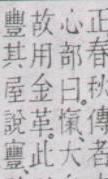 正春秋傳者
心部曰愾大
故用金革此
豐其屋說寷